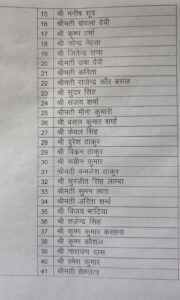 15 श्री मनीष सूद
16 श्रीमती चंचला देवी
17 श्री कृष्ण वर्मा
18 श्री नरेन्द्र मेहता
19 श्री जितेन्द्र राणा
20 श्रीमती उषा देवी
21 श्रीमती कविता
22 श्रीमती राजेन्द्र कौर बंसल
23 श्री सुन्दर सिंह
24 श्री संजय शर्मा
25 श्रीमती मीना कुमारी
26 श्री बंसल कुमार शर्मा
27 श्री केवल सिंह
28 श्री सुरेश ठाकुर
29 श्री विक्रम ठाकुर
30 श्री प्रवीन कुमार
31 श्रीमती कमलेश ठाकुर
32 श्री सुरजीत सिंह लाम्बा
33 श्रीमती सुमन लता
34 श्रीमती अनिता शर्मा
35 श्री विजय भाटिया
36 श्री राजेन्द्र सिंह
37 श्री कृष्ण कुमार
38 श्री कृष्ण कौशल
39 श्री नारायण दास
40 श्री रमेश कुमार
41 श्रीमती हेमलता